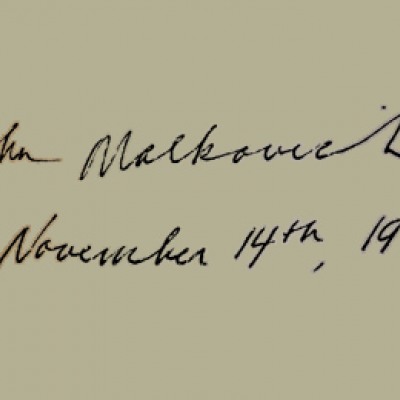 hn Malkovic
November 14th, 19